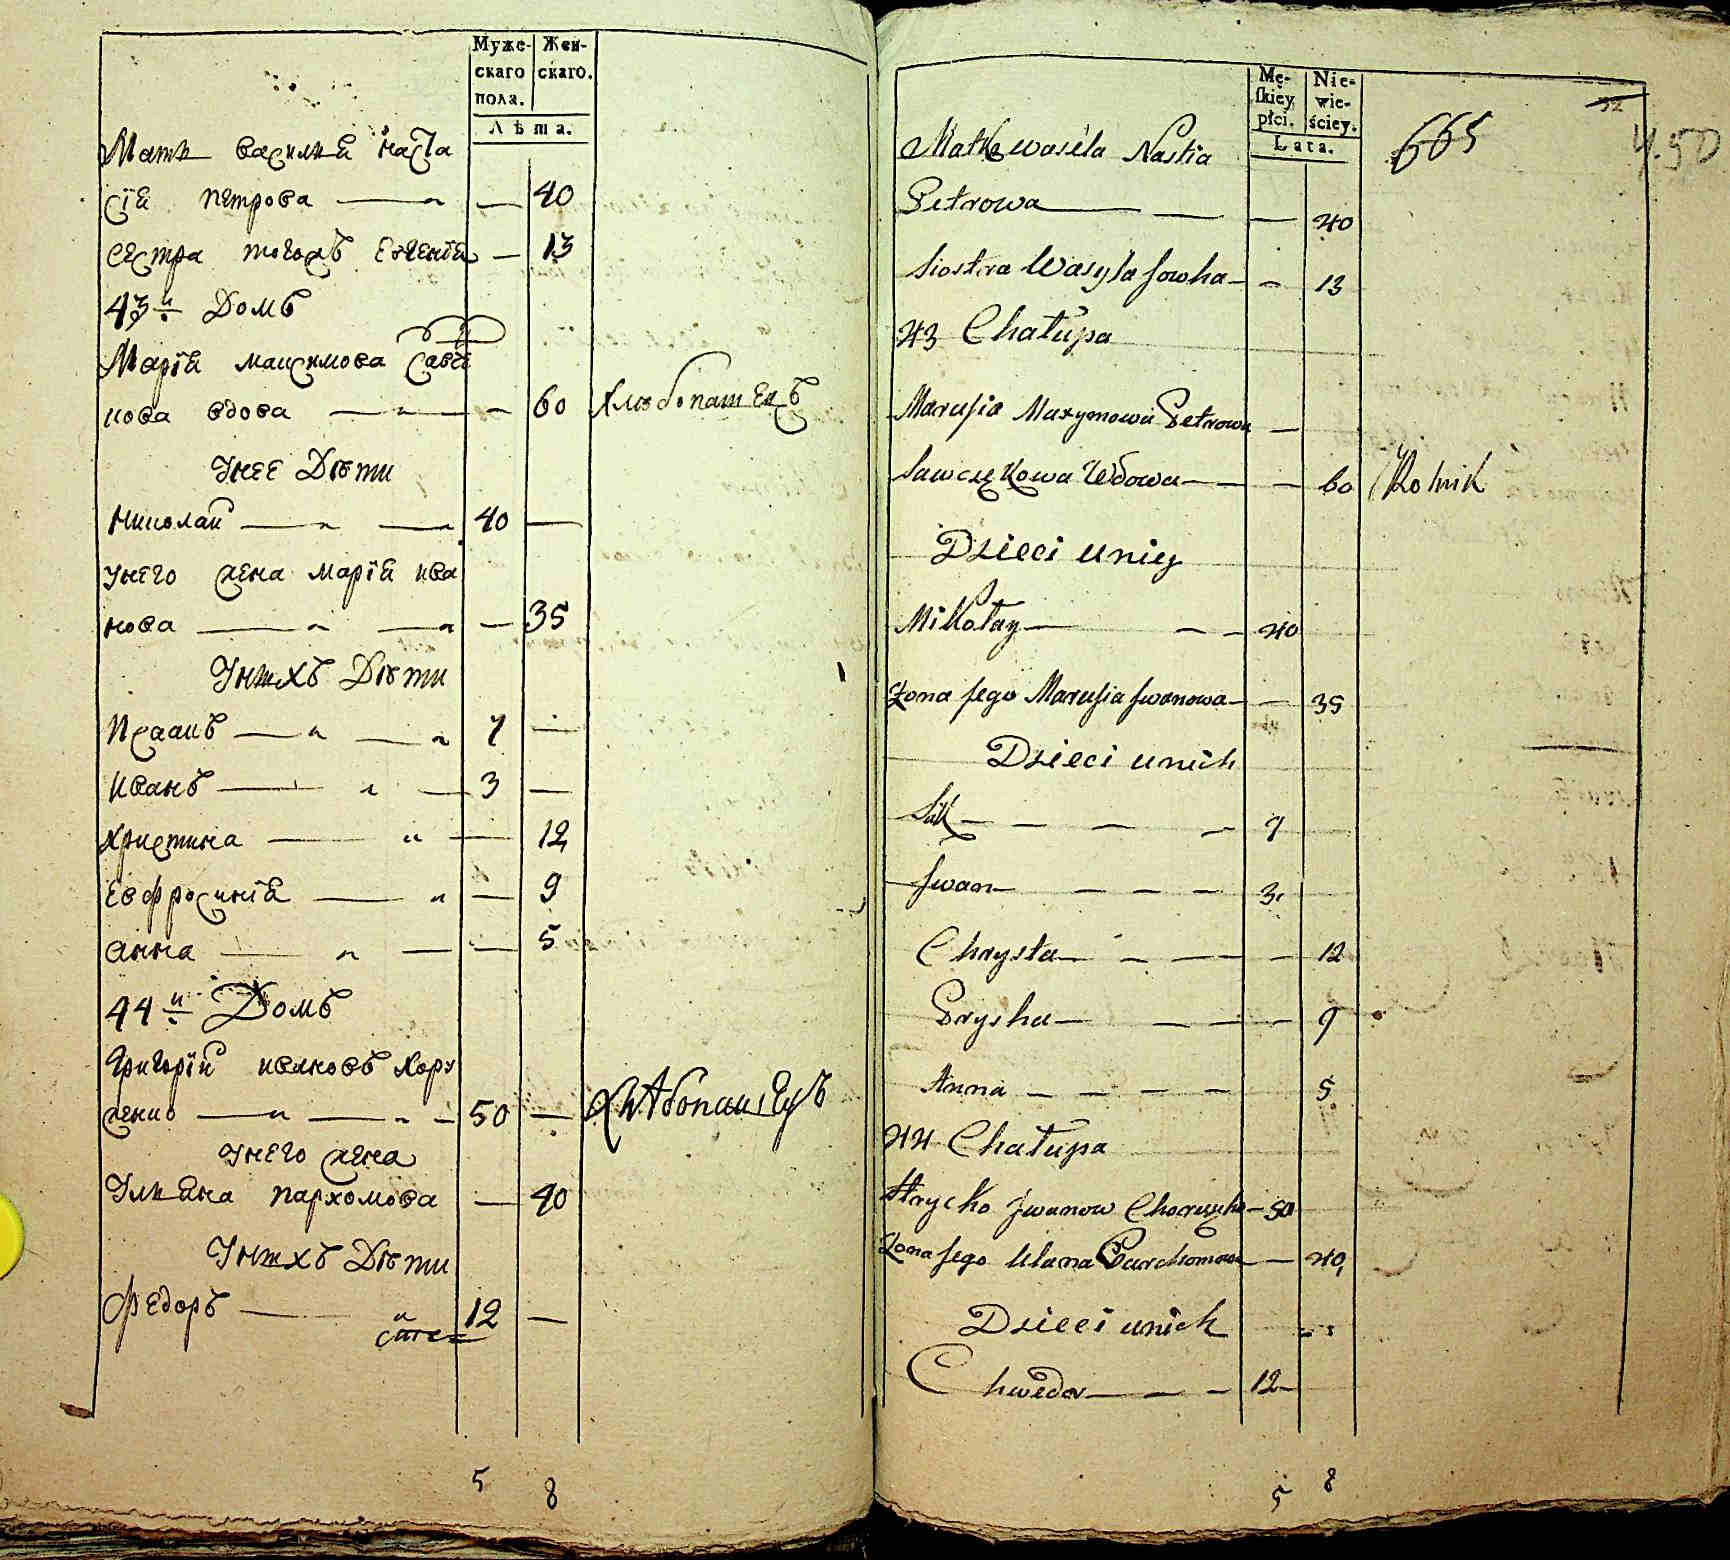 Муже-
скаго
пола.
Жен-
скаго.
Лѣта.
Мати василия наста
сїя петрова — — 40
сестра тогожъ Евгенїя — 13
43й Домъ
Марїя максимова савчу
кова вдова — — 60 Хлѣбопашецъ
Унее Дѣти
николай — — 40 —
унего жена марїя ива
нова — — — 35
Унихъ Дѣти
Исаакъ — — 7 —
иванъ — — 3 —
христина — — 12
Евфросинїя — — 9
анна — — — 5
44й Домъ
Григорїй ивановъ хору
женко — — 50 — Хлѣбопашецъ
Унего жена
Ульяна пархомова — 40
Унихъ Дѣти
Федоръ — 12 —
5 8
Mę-
skiey
płci.
Nie-
wie-
ściey.
Lata.
32
665
4.50
Matka wasila Nastia
Petrowa — — — 40
Siostra Wasyla Jowha — — 13
43 Chałupa
Marusia Maxymowa Petrowa —
Sawczukowa Wdowa — — 60 Rolnik
Dzieci uniey
Mikołay — — — 40
Żona Jego Marusia Iwanowa — — 35
Dzieci unich
Sak — — — — 7
Iwan — — — — 3
Chrysta — — — — — 12
Pryska — — — — 9
Anna — — — — 5
44 Chałupa
Hrycko Iwanow — 50
Żona Jego Ulana Parchomowa — — 40
Dzieci unich
Chwedor — — — 12 —
5 8